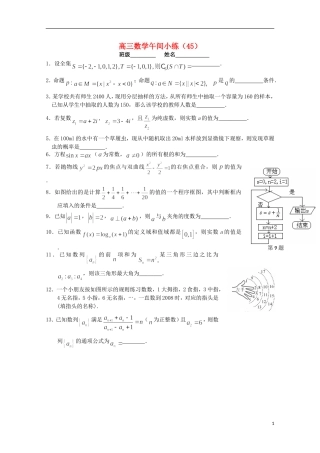 高三数学午间小练（45）
班级________ 姓名________
1．设全集S={-2,-1,0,1,2},T={-1,0,1},则C_S(S∩T)=
2．命题
3．某学校共有师生2400人，现用分层抽样的方法，从所有师生中抽取一个容量为160的样本，
已知从学生中抽取的人数为150，那么该学校的教师人数是________.
4．若复数z₁=a+2i, z₂=3-4i, 且 z₁/z₂ 为纯虚数，则实数a的值为________
5．在100ml的水中有一个草履虫，现从中随机取出20ml水样放到显微镜下观察，则发现草履
虫的概率是________.
6．方程sin πx=px（a为常数，）的所有根的和为________.
7．若抛物线y²=2px的焦点与双曲线 的右焦点重合，则p的值为
8．如图给出的是计算1/2+1/4+1/6+…+1/20的值的一个程序框图，其中判断框内
应填入的条件是________.
9．已知|a|=1，|b|=2，a⊥(a+b)，则a与b夹角的度数为________.
10．已知函数f(x)=log_a(x+1)的定义域和值域都是[0,1]，则实数a的值是________.
11．已知数列 的前 项和为S_n=n²，某三角形三边之比为
，则该三角形最大角为________.
12．一个小朋友按如图所示的规则练习数数，1大拇指，2食指，3中指，
4无名指，5小指，6无名指，…，一直数到2008时，对应的指头是
（填指头的名称）．
13．已知数列{a_n}满足 （n为正整数）且a₂=6，则数
列{a_n}的通项公式为________.
开始
是
否
输出s
结束
第9题
1